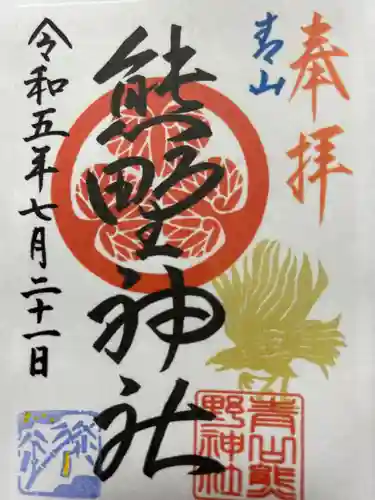 奉拝
青山
熊野神社
令和五年七月二十一日
青山熊
野神社